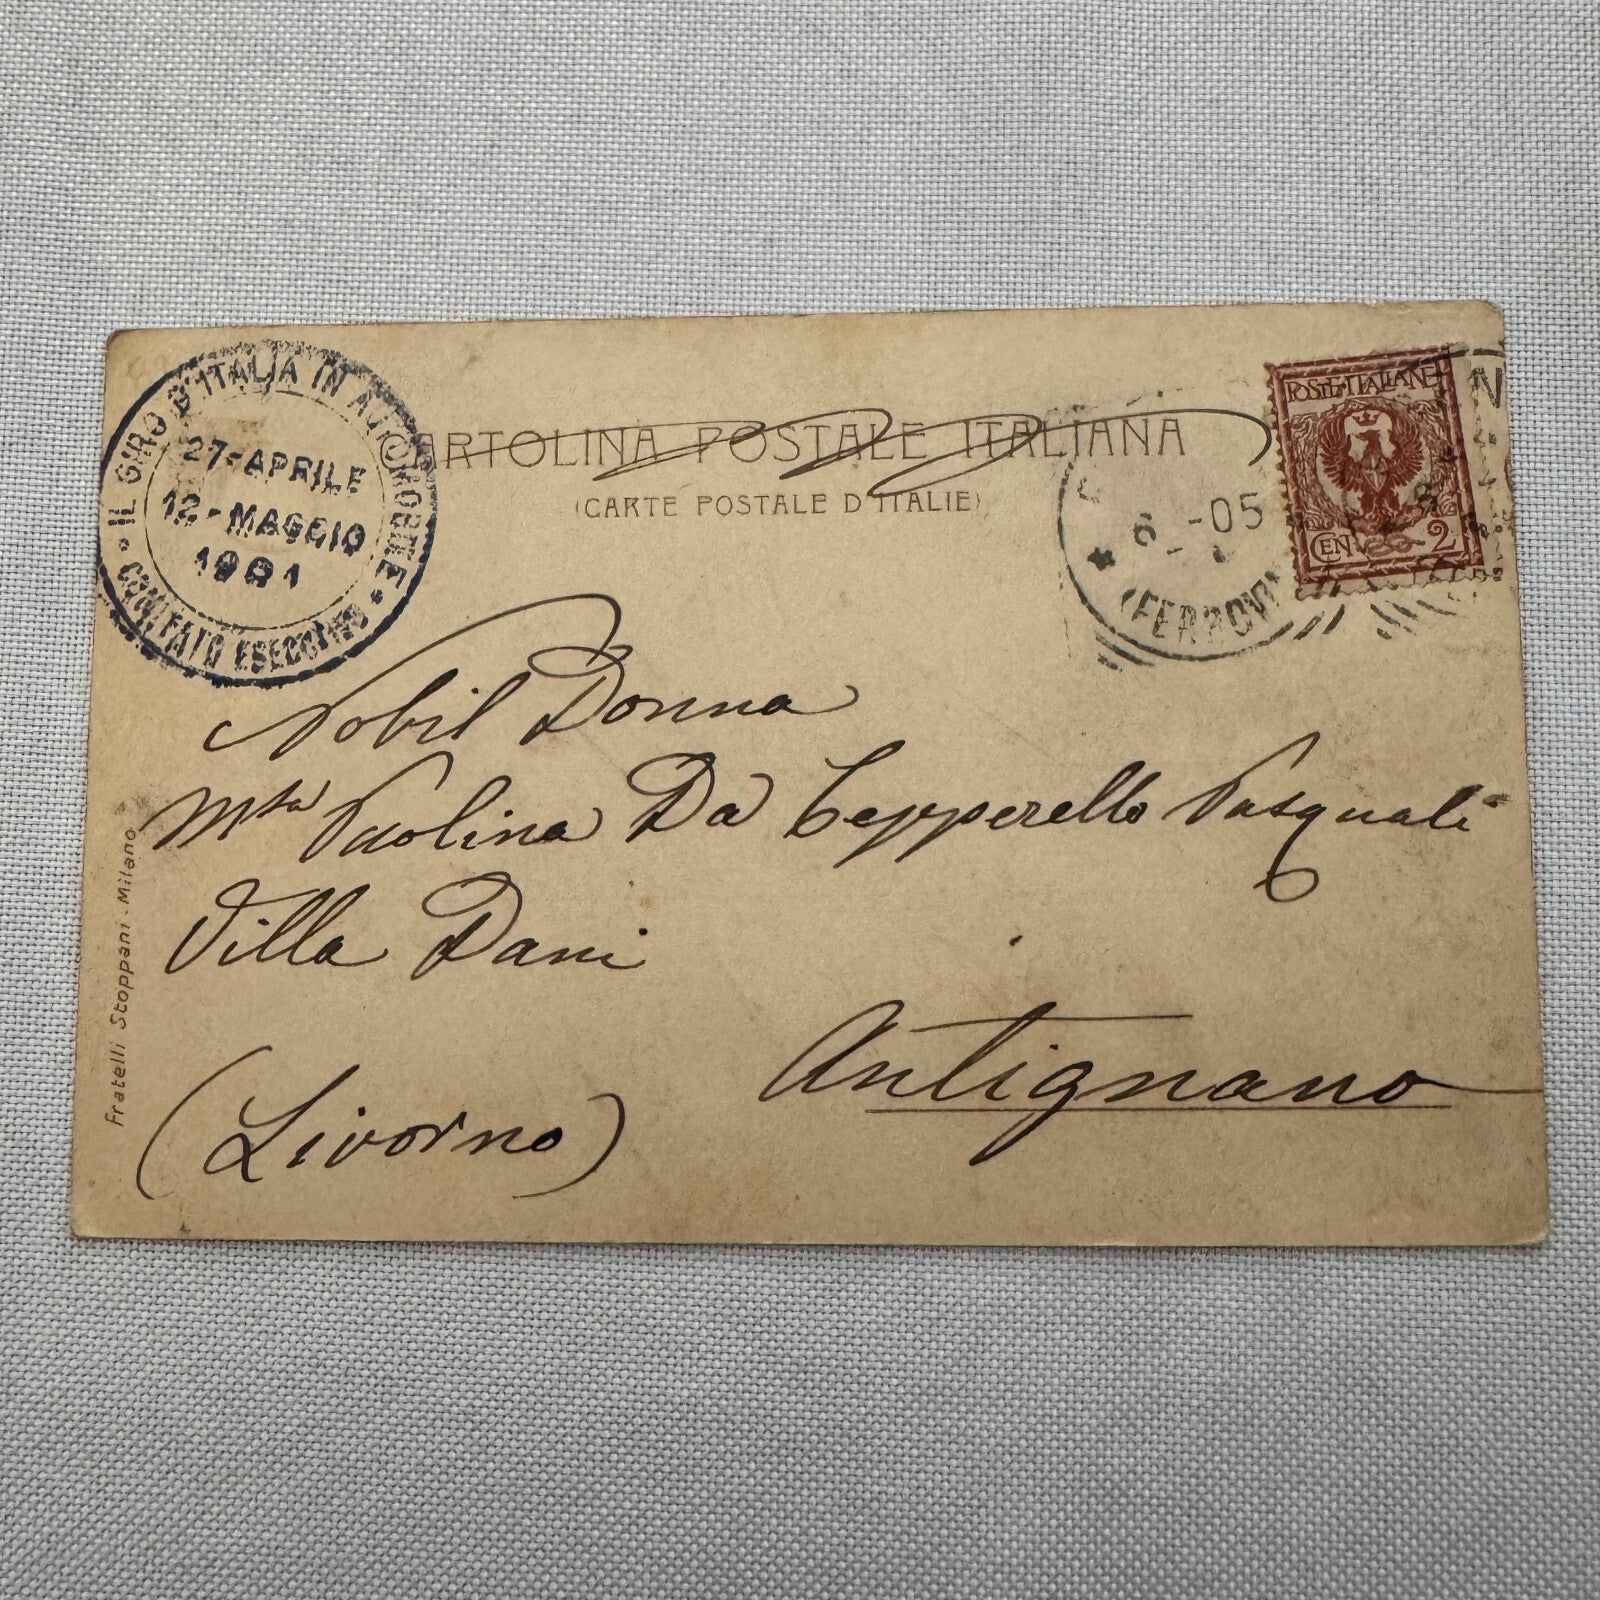 IL GIRO D'ITALIA IN AUTOMOBILE
27-APRILE
12-MAGGIO
1901
COMITATO ESECUTIVO
CARTOLINA POSTALE ITALIANA
(CARTE POSTALE D'ITALIE)
-05
(FERROVIA
POSTE ITALIANE
CEN 2
N
Nobil Donna
Msa Paolina Da Cepperello Pasquali
Villa Dani
Antignano
(Livorno)
Fratelli Stoppani - Milano